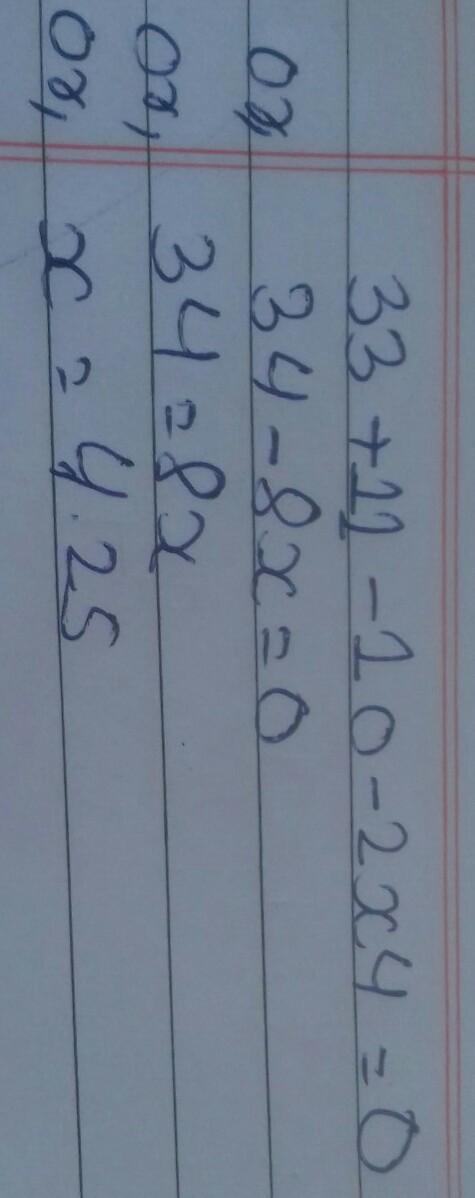 33 + 11 - 10 - 2x4 = 0
or, 34 - 8x = 0
or, 34 = 8x
or, x = 4.25